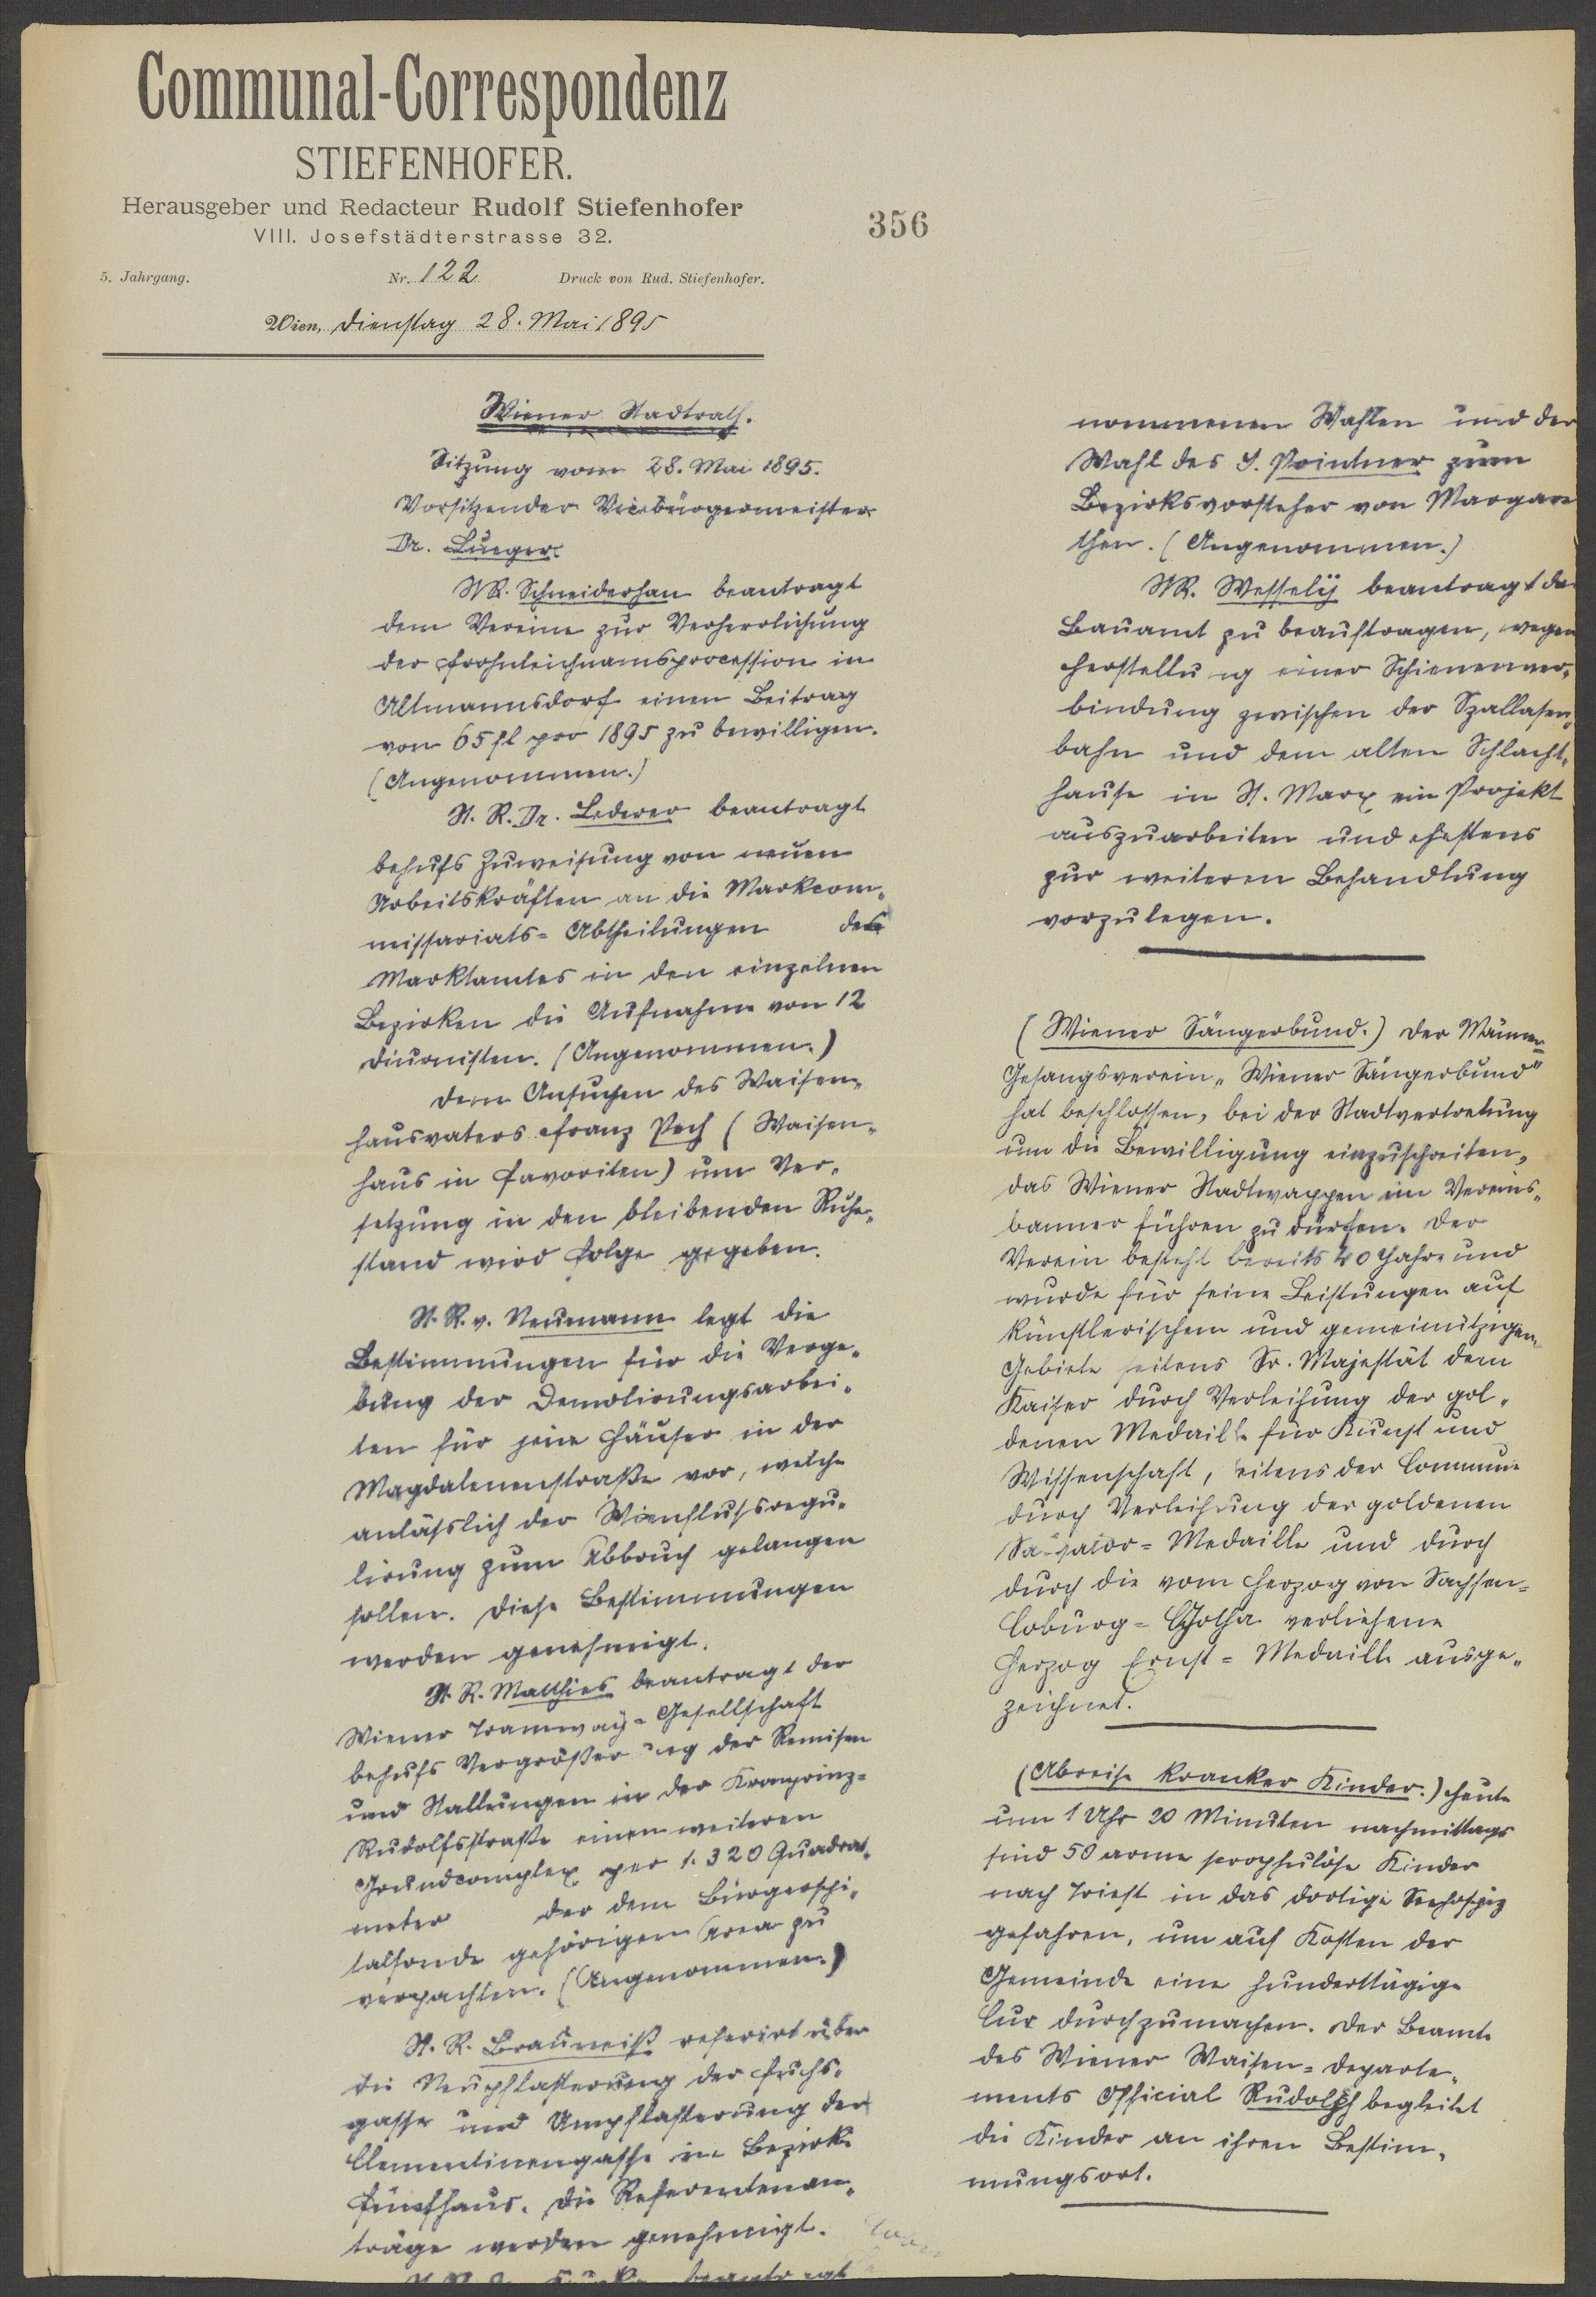 Communal-Correspondenz
STIEFENHOFER.
Herausgeber und Redacteur Rudolf Stiefenhofer
VIII. Josefstädterstrasse 32.
5. Jahrgang. Nr. 122 Druck von Rud. Stiefenhofer.
Wien, Dienstag 28. Mai 1895
356
Wiener Stadtrath.
Sitzung vom 28. Mai 1895.
Vorsitzender Vicebürgermeister
Dr. Lueger.
StR. Schneiderhan beantragt
dem Vereine zur Verherrlichung
der Frohnleichnamsprocession in
Altmannsdorf einen Beitrag
von 65 fl pro 1895 zu bewilligen.
(Angenommen.)
St. R. Dr. Lederer beantragt
behufs Zuweisung von neuen
Arbeitskräften an die Markcom-
missariats-Abtheilungen des
Marktamtes in den einzelnen
Bezirken die Aufnahme von 12
Diurnisten. (Angenommen.)
Dem Ansuchen des Waisen-
hausvaters Franz Pech (Waisen-
haus in Favoriten) um Ver-
setzung in den bleibenden Ruhe-
stand wird Folge gegeben.
St. R. v. Neumann legt die
Bestimmungen für die Verge-
bung der Demolirungsarbei-
ten für jene Häuser in der
Magdalenenstraße vor, welche
anläßlich der Wienflußregu-
lirung zum Abbruch gelangen
sollen. Diese Bestimmungen
werden genehmigt.
St. R. Matthies beantragt der
Wiener Tramway-Gesellschaft
behufs Vergrößerung der Remisen
und Stallungen in der Kronprinz-
Rudolfsstraße einen weiteren
Grundcomplex per 1.320 Quadrat-
meter der dem Bürgerspi-
talfonde gehörigen Area zu
verpachten. (Angenommen.)
St. R. Brauneiß referirt über
die Neupflasterung der Fuchs-
gasse und Umpflasterung der
Clementinengasse im Bezirke
Fünfhaus. Die Referentenan-
träge werden genehmigt.
beantragt
nommenen Wahlen und der
Wahl des J. Pointner zum
Bezirksvorsteher von Margare
then. (Angenommen.)
StR. Wessely beantragt da
Bauamt zu beauftragen, wegen
Herstellung einer Schienenver-
bindung zwischen der Szallasen-
bahn und dem alten Schlacht-
hause in St. Marx ein Projekt
auszuarbeiten und ehestens
zur weiteren Behandlung
vorzulegen.
(Wiener Sängerbund.) Der Männer-
Gesangsverein "Wiener Sängerbund"
hat beschlossen, bei der Stadtvertretung
um die Bewilligung einzuschreiten,
das Wiener Stadtwappen im Vereins-
banner führen zu dürfen. Der
Verein besteht bereits 40 Jahre und
wurde für seine Leistungen auf
künstlerischem und gemeinnützigen
Gebiete seitens Sr. Majestät dem
Kaiser durch Verleihung der gol-
denen Medaille für Kunst und
Wissenschaft, seitens der Commune
durch Verleihung der goldenen
Salvator-Medaille und durch
durch die vom Herzog von Sachsen-
Coburg-Gotha verliehene
Herzog Ernst-Medaille ausge-
zeichnet.
(Abreise kranker Kinder.) Heute
um 1 Uhr 20 Minuten nachmittags
sind 50 arme scrophulöse Kinder
nach Triest in das dortige Seehospiz
gefahren, um auf Kosten der
Gemeinde eine hunderttägige
Cur durchzumachen. Der Beamte
des Wiener Waisen-Departe-
ments Official Rudolph begleitet
die Kinder an ihren Bestim-
mungsort.